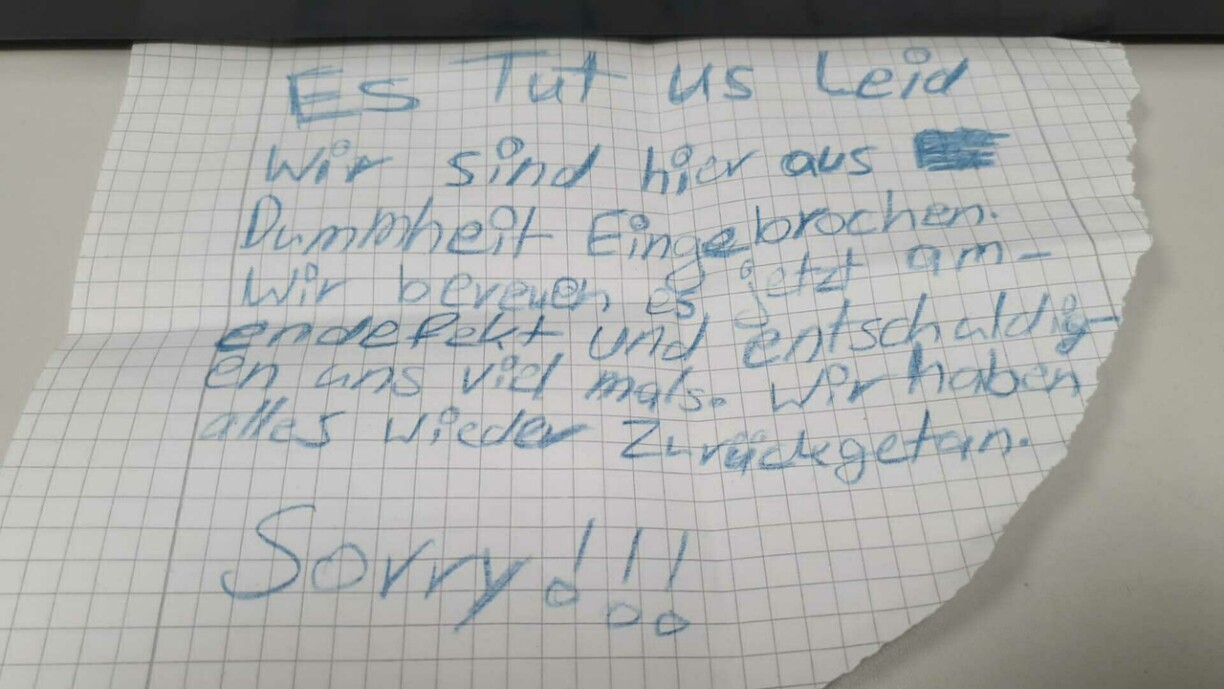 Es Tut us Leid
Wir sind hier aus
Dummheit Eingebrochen.
Wir bereuen es jetzt am-
endefekt und entschuldig-
en uns viel mals. Wir haben
alles wieder Zurückgetan.
Sorry!!!